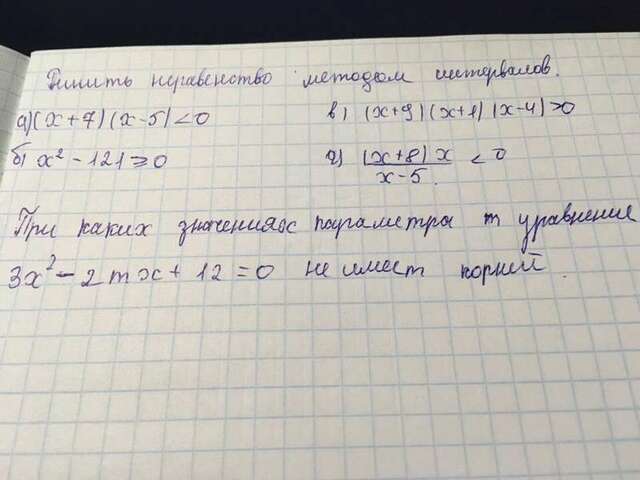 Решить неравенство методом интервалов.
а) (x+7)(x-5)<0
в) (x+9)(x+1)(x-4)>0
б) x² - 121 ≥ 0
г) (x+8)x / x-5 < 0
При каких значениях параметры m уравнение
3x² - 2mx + 12 = 0 не имеет корней.